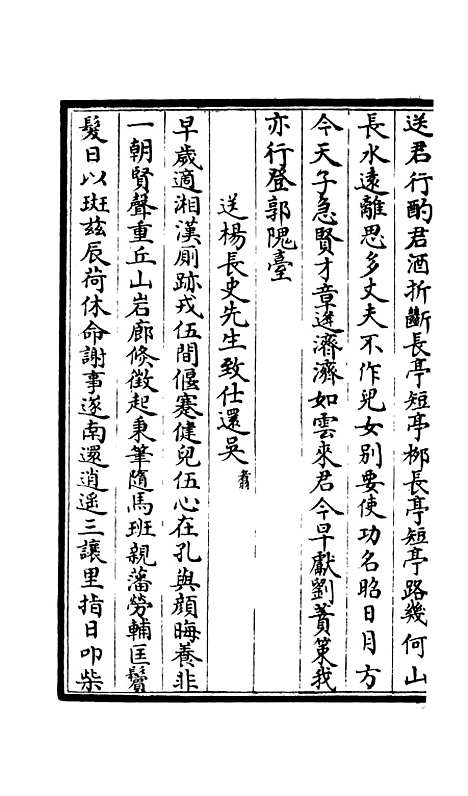 送君行酌君酒折斷長亭短亭栁長亭短亭路幾何山
長水遠離思多丈夫不作兒女别要使功名昭日月方
今天子急賢才章逢濟濟如雲來君今早獻劉蕡策我
亦行登郭隗臺
送楊長史先生致仕還吳翥
早歲適湘漢厠跡戎伍間偃蹇健兒伍心在孔與顔晦養非
一朝賢聲重丘山岩廊倏徴起秉筆隨馬班親藩勞輔匡鬢
髮日以斑兹辰荷休命謝事遂南還逍遥三讓里指日叩柴